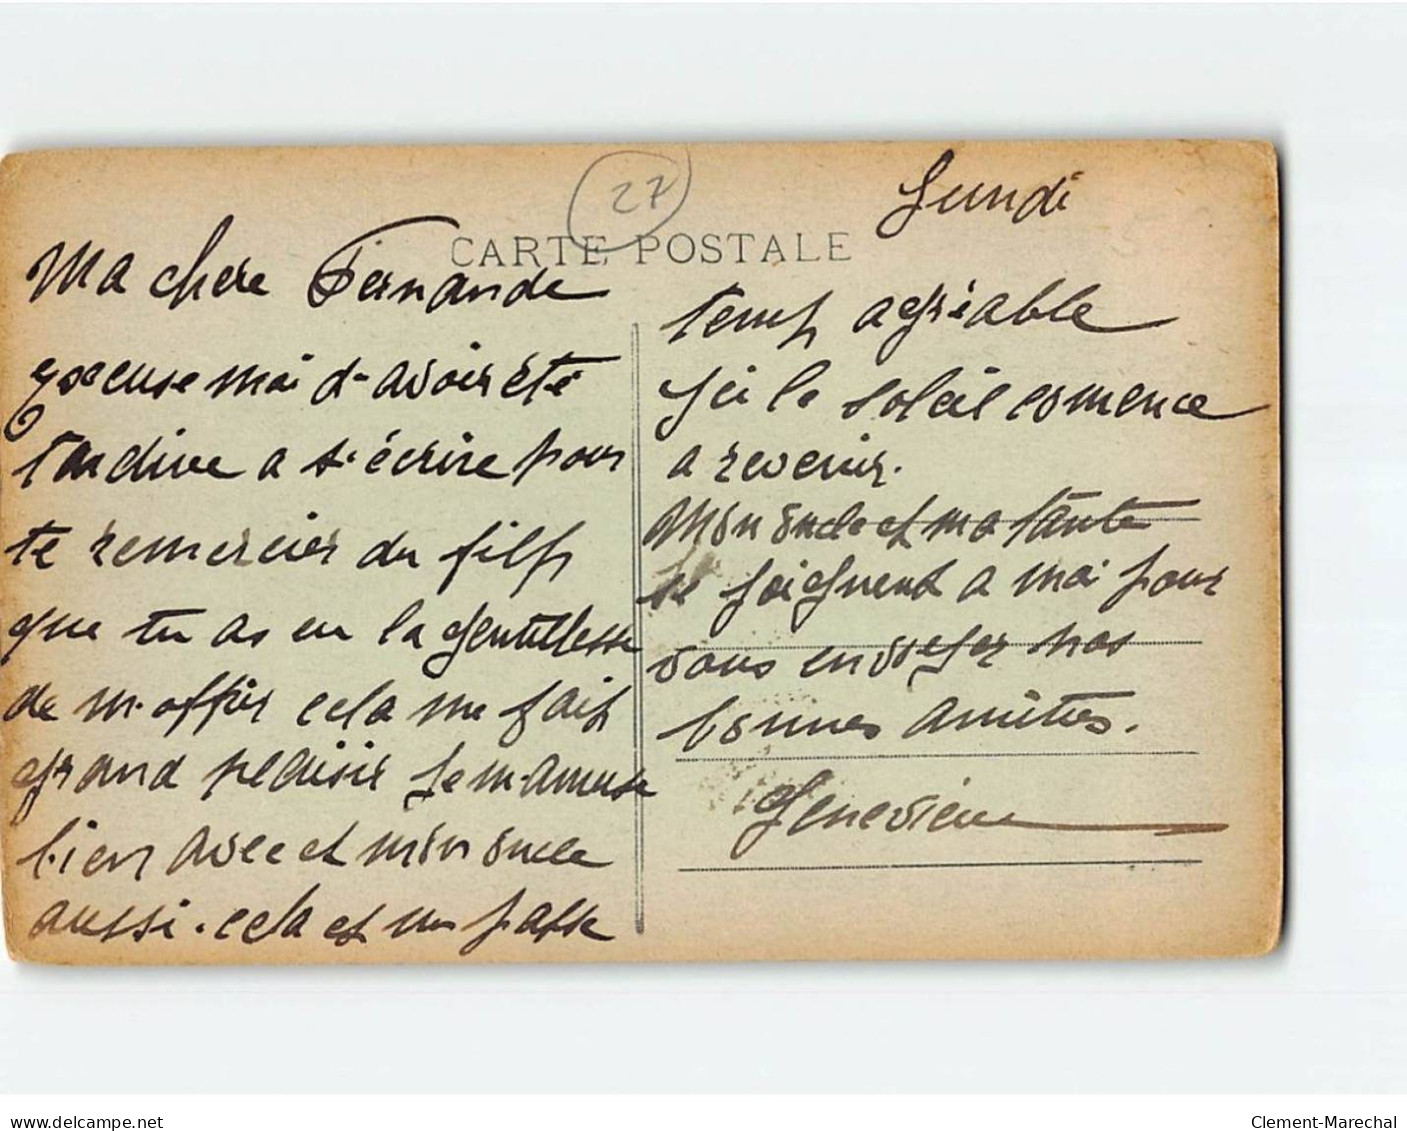 27
CARTE POSTALE
Lundi
Ma chère Fernande
excuse moi d'avoir été
tardive a t'écrire pour
te remercier du filfs
que tu as eu la gentillesse
de m'offrir cela me fait
grand plaisir Je m'amuse
bien avec et mon oncle
aussi. cela est un passe
temps agréable
Ici le soleil comence
a revenir.
Mon oncle et ma tante
se joignent a moi pour
vous envoyer nos
bonnes amitiés.
Geneviève
www.delcampe.net
Clement-Marechal